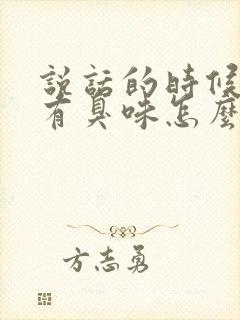 説話的時候
有臭味怎麼
方志勇